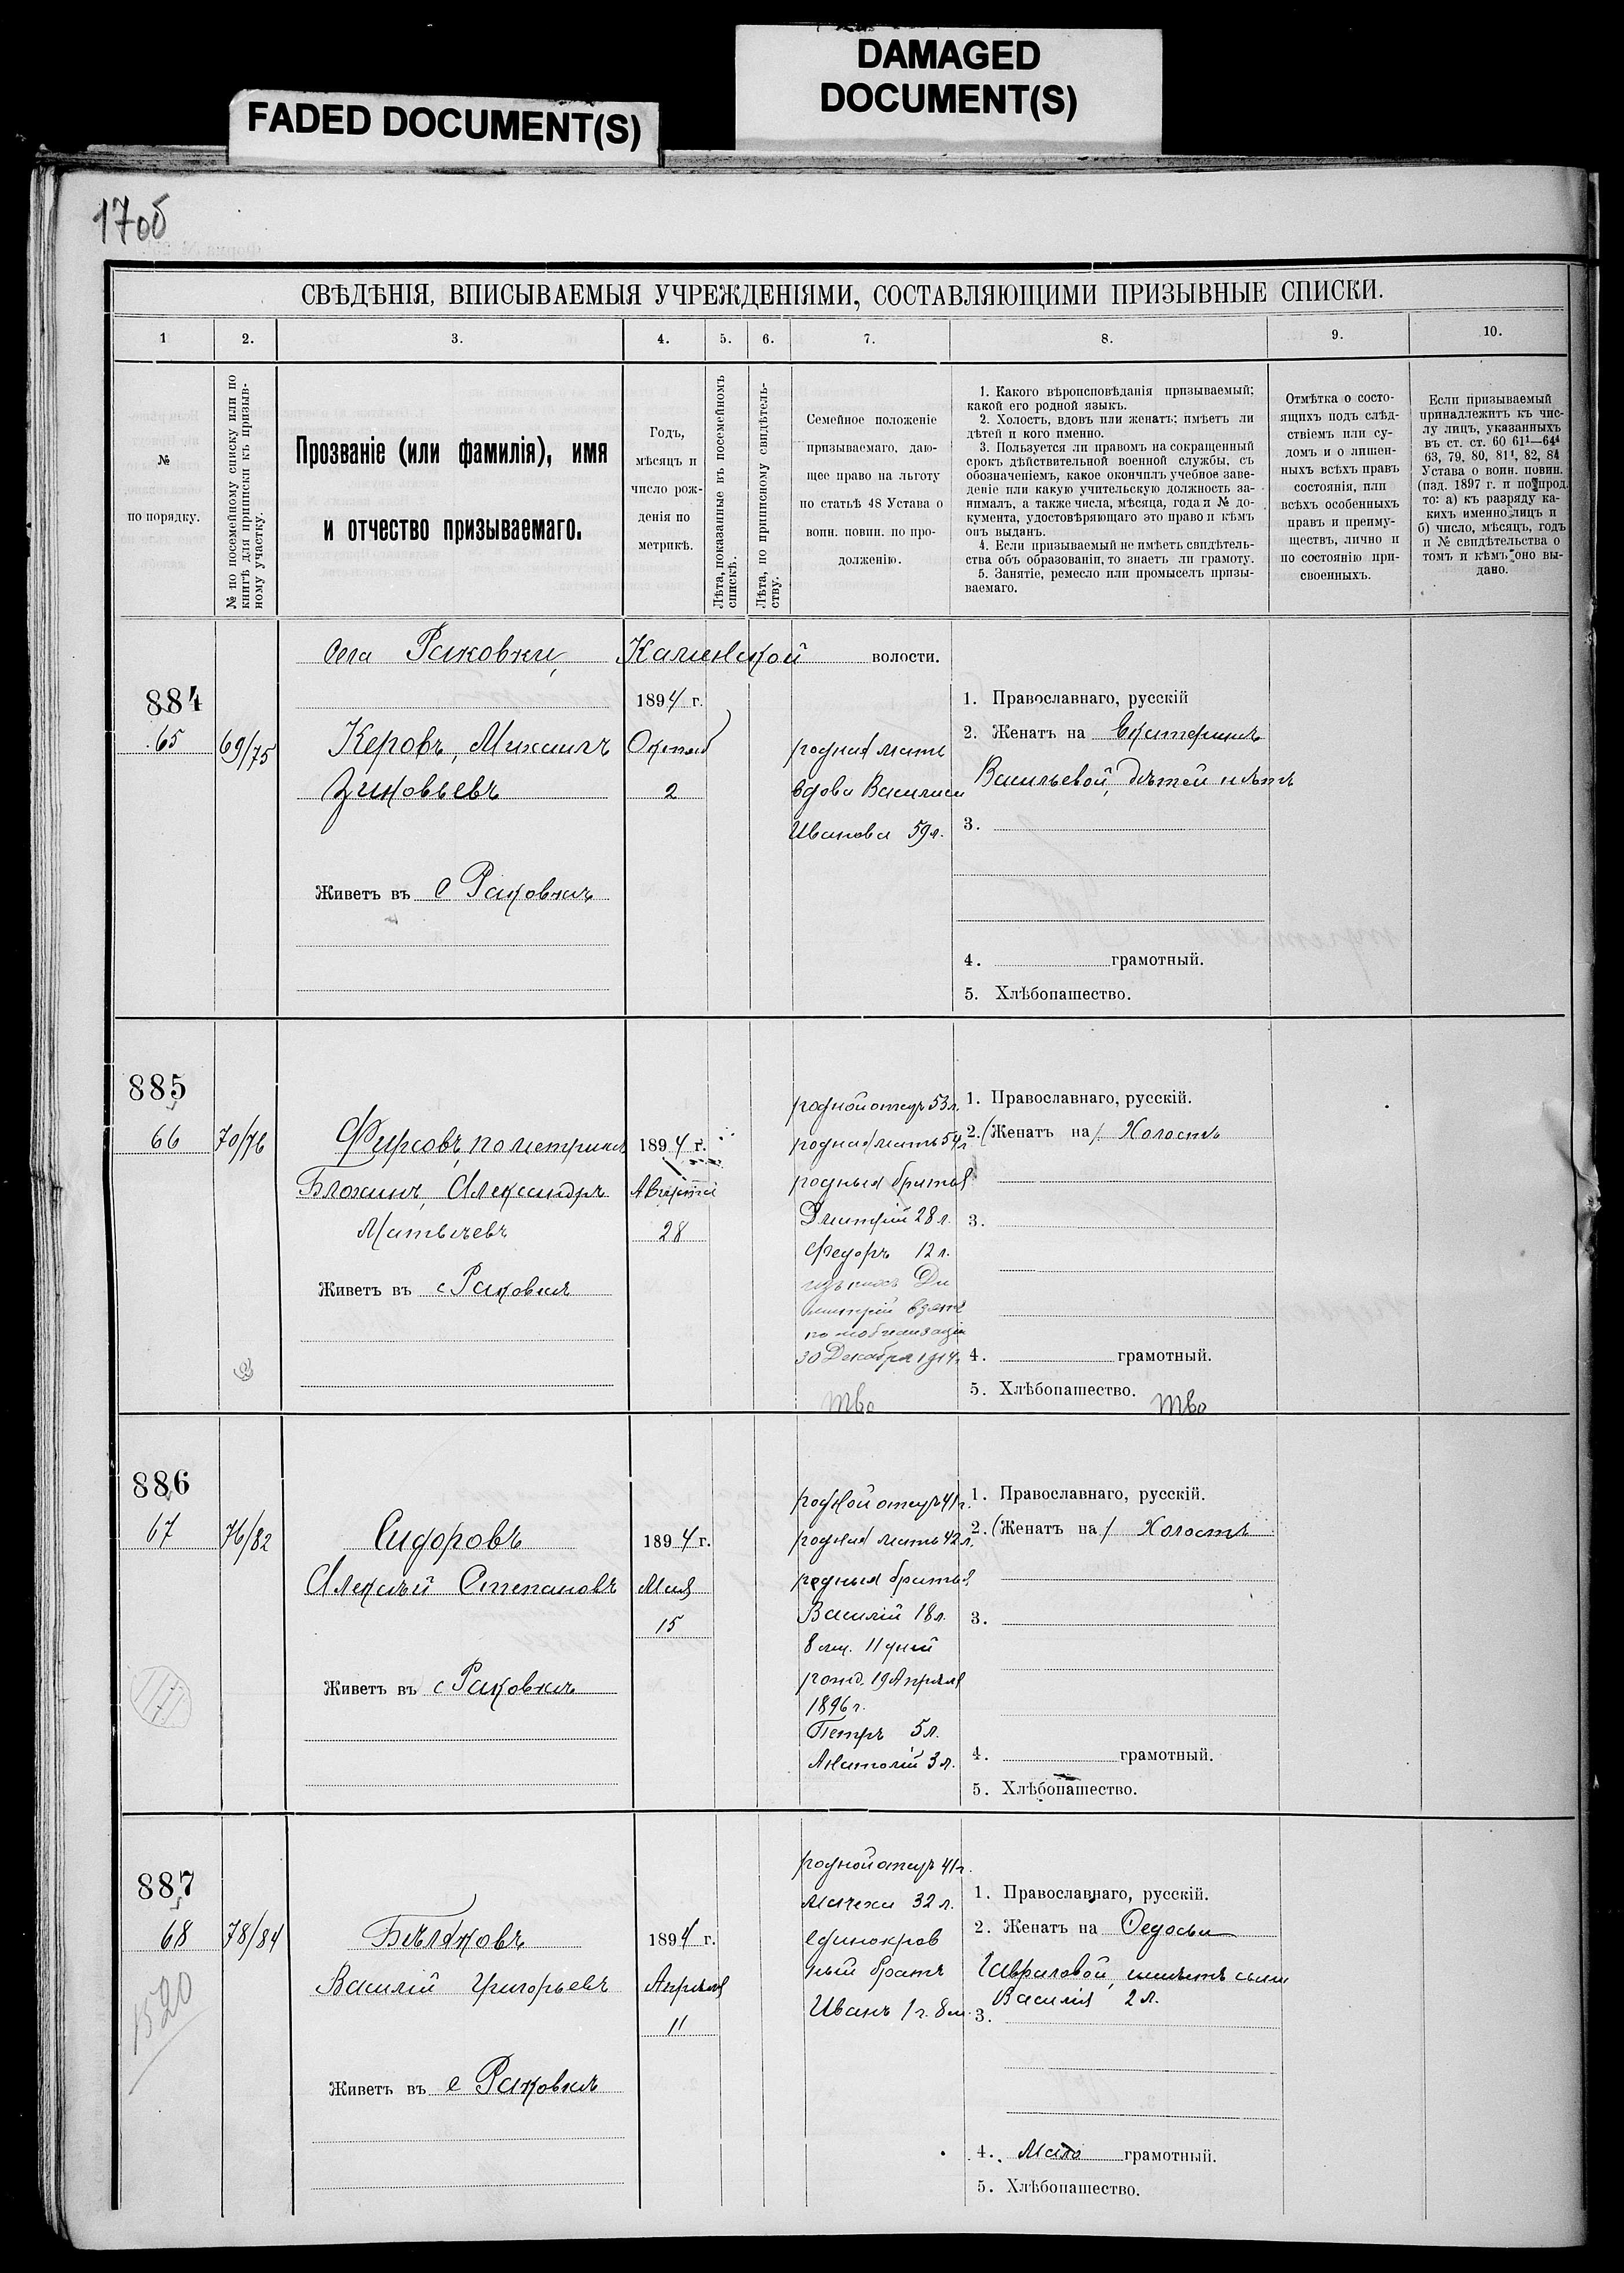 FADED DOCUMENT(S)
DAMAGED
DOCUMENT(S)
17об
СВѢДѢНІЯ, ВПИСЫВАЕМЫЯ УЧРЕЖДЕНІЯМИ, СОСТАВЛЯЮЩИМИ ПРИЗЫВНЫЕ СПИСКИ.
1 2. 3. 4. 5. 6. 7. 8. 9. 10.
№
по порядку.
№ по посемейному списку или по
книгѣ для приписки къ призыв-
ному участку.
Прозваніе (или фамилія), имя
и отчество призываемаго.
Годъ,
мѣсяцъ и
число рож-
денія по
метрикѣ.
Лѣта, показанные въ посемейномъ
спискѣ.
Лѣта, по приписному свидѣтель-
ству.
Семейное положеніе
призываемаго, даю-
щее право на льготу
по статьѣ 48 Устава о
воин. повин. по про-
долженію.
1. Какого вѣроисповѣданія призываемый;
какой его родной языкъ.
2. Холостъ, вдовъ или женатъ; имѣетъ ли
дѣтей и кого именно.
3. Пользуется ли правомъ на сокращенный
срокъ дѣйствительной военной службы, съ
обозначеніемъ, какое окончилъ учебное заве-
деніе или какую учительскую должность за-
нималъ, а также числа, мѣсяца, года и № до-
кумента, удостовѣряющаго это право и кѣмъ
онъ выданъ.
4. Если призываемый не имѣетъ свидѣтель-
ства объ образованіи, то знаетъ ли грамоту.
5. Занятіе, ремесло или промыселъ призы-
ваемаго.
Отмѣтка о состо-
ящихъ подъ слѣд-
ствіемъ или су-
домъ и о лишен-
ныхъ всѣхъ правъ
состоянія, или
всѣхъ особенныхъ
правъ и преиму-
ществъ, лично и
по состоянію при-
своенныхъ.
Если призываемый
принадлежитъ къ чис-
лу лицъ, указанныхъ
въ ст. ст. 60 61¹—64⁴
63, 79, 80, 81¹, 82, 84
Устава о воин. повин.
(изд. 1897 г. и по прод.
то: а) къ разряду ка-
кихъ именно лицъ и
б) число, мѣсяцъ, годъ
и № свидѣтельства о
томъ и кѣмъ оно вы-
дано.
Села Раковки, Каменской волости.
884
65
69/75
Керовъ, Михаилъ
Зиновьевъ
Живетъ въ с Раковкѣ
1894 г.
Октяб
2
родная мать
вдова Василиса
Иванова 59 л.
1. Православнаго, русскій
2. Женатъ на Екатеринѣ
Васильевой, дѣтей нѣтъ
3.
4. грамотный.
5. Хлѣбопашество.
885
66
70/76
Фирсовъ, по метрикѣ
Блохинъ, Александръ
Матвѣевъ
Живетъ въ с Раковкѣ
1894 г.
Августа
28
родной отецъ 53 л.
родная мать 54 л
родныя братья
Дмитрій 28 л.
Федоръ 12 л.
изъ нихъ Ди
митрій взятъ
по мобилизаціи
30 Декабря 1914 г.
тво
1. Православнаго, русскій.
2. (Женатъ на) Холостъ
3.
4. грамотный.
5. Хлѣбопашество.
тво
886
67
76/82
Сидоровъ
Алексѣй Степановъ
Живетъ въ с Раковкѣ
1894 г.
Мая
15
родной отецъ 41 г.
родная мать 42 л.
родныя братья
Василій 18 л.
8 мц. 11 дней
рожд. 19 Апрѣля
1896 г.
Петръ 5 л.
Анатолій 3 л.
1. Православнаго, русскій.
2. (Женатъ на) Холостъ
3.
4. грамотный.
5. Хлѣбопашество.
887
68
78/84
1520
Бѣляковъ
Василій Григорьевъ
Живетъ въ с Раковкѣ
1894 г.
Апрѣля
11
родной отецъ 41 г.
мачеха 32 л.
единокров
ный братъ
Иванъ 1 г. 8 м.
1. Православнаго, русскій.
2. Женатъ на Федосьи
Гавриловой, имѣетъ сына
Василія 2 л.
3.
4. Мало грамотный.
5. Хлѣбопашество.